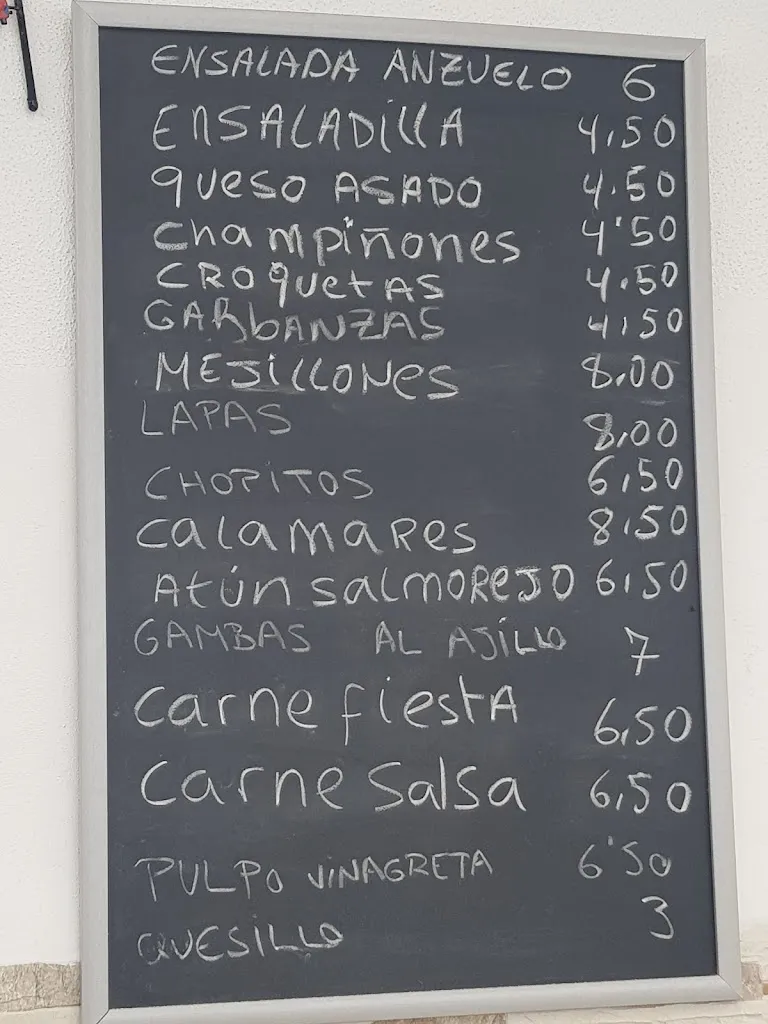 ENSALADA ANZUELO 6
ENSALADILLA 4,50
QUESO ASADO 4.50
Champiñones 4'50
CROQuetAS 4.50
GARbANZAS 4,50
MEJiLLONes 8,00
LAPAS 8,00
CHOPITOS 6,50
CalamaRes 8,50
Atún salmoRejo 6,50
GAMBAS AL AJILLO 7
Carne fiestA 6,50
Carne Salsa 6,50
PULPO VINAGRETA 6'50
QUESILLO 3